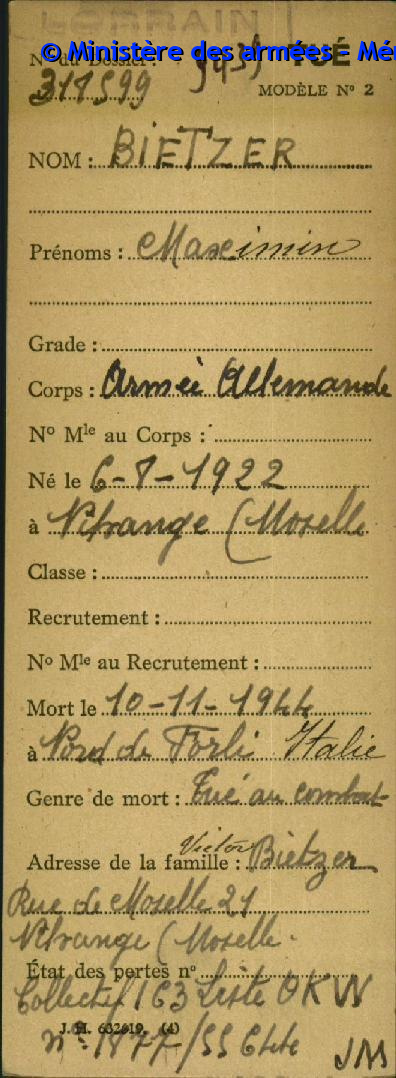 LORRAIN
© Ministère des armées - Mé
N° du Dossier :
TUÉ
317599
MODÈLE N° 2
NOM : BIETZER
Prénoms : Maximin
Grade :
Corps : Armée Allemande
N° Mle au Corps :
Né le 6-7-1922
à Nilvange (Moselle
Classe :
Recrutement :
N° Mle au Recrutement :
Mort le 10-11-1944
à Nord de Forli Italie
Genre de mort : Tué au combat
Victor
Adresse de la famille : Bietzer
Rue de Moselle 21
Nilvange (Moselle.
État des pertes n°
Collectif 163 Liste OKW
J. H. 632619. (4)
n° 1877/55
JM